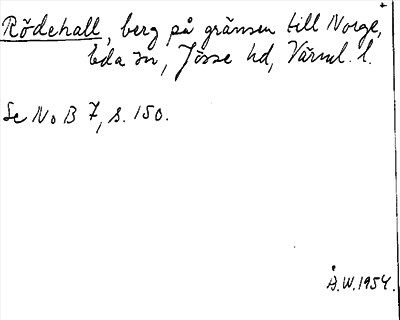 Rödehall, berg på gränsen till Norge,
Eda sn, Jösse hd, Värml. l.
Se NoB 7, s. 150.
Å.W. 1954.